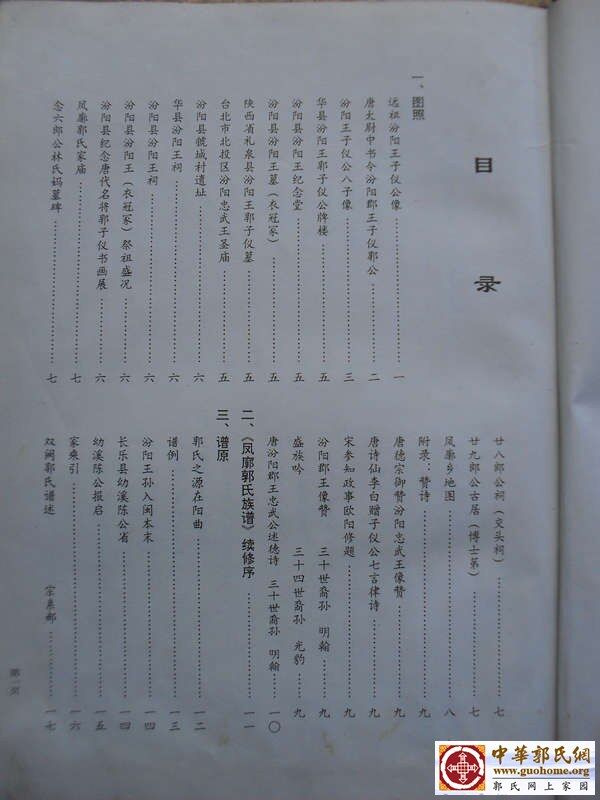 目录
一、图照
远祖汾阳王子仪公像……一
唐太尉中书令汾阳郡王子仪郭公……二
汾阳王子仪公八子像……三
华县汾阳王郭子仪公牌楼……五
汾阳县汾阳王纪念堂……五
汾阳县汾阳王墓（衣冠冢）……五
陕西省礼泉县汾阳王郭子仪墓……五
台北市北投区汾阳忠武王圣庙……五
汾阳县虢城村遗址……六
华县汾阳王祠……六
汾阳县汾阳王祠……六
汾阳县汾阳王（衣冠冢）祭祖盛况……六
汾阳县纪念唐代名将郭子仪书画展……六
凤廓郭氏家庙……七
念六郎公林氏妈墓碑……七
廿八郎公祠（交头祠）……七
廿九郎公古居（博士第）……七
凤廓乡地图……八
附录：赞诗……九
唐德宗御赞汾阳忠武王像赞……九
唐诗仙李白赠子仪公七言律诗……九
宋参知政事欧阳修题……九
汾阳郡王像赞 三十世裔孙 明翰……九
盛族吟 三十四世裔孙 光豹……九
唐汾阳郡王忠武公述德诗 三十世裔孙 明翰……一〇
二、《凤廓郭氏族谱》续修序……一一
三、谱原
郭氏之源在阳曲……一二
谱例……一三
汾阳王孙入闽本末……一四
长乐县幼溪陈公省……一四
幼溪陈公报启……一五
家乘引……一六
双阙郭氏谱述……一七
第一页
中華郭氏網
www.guohome.org
郭氏网上家园